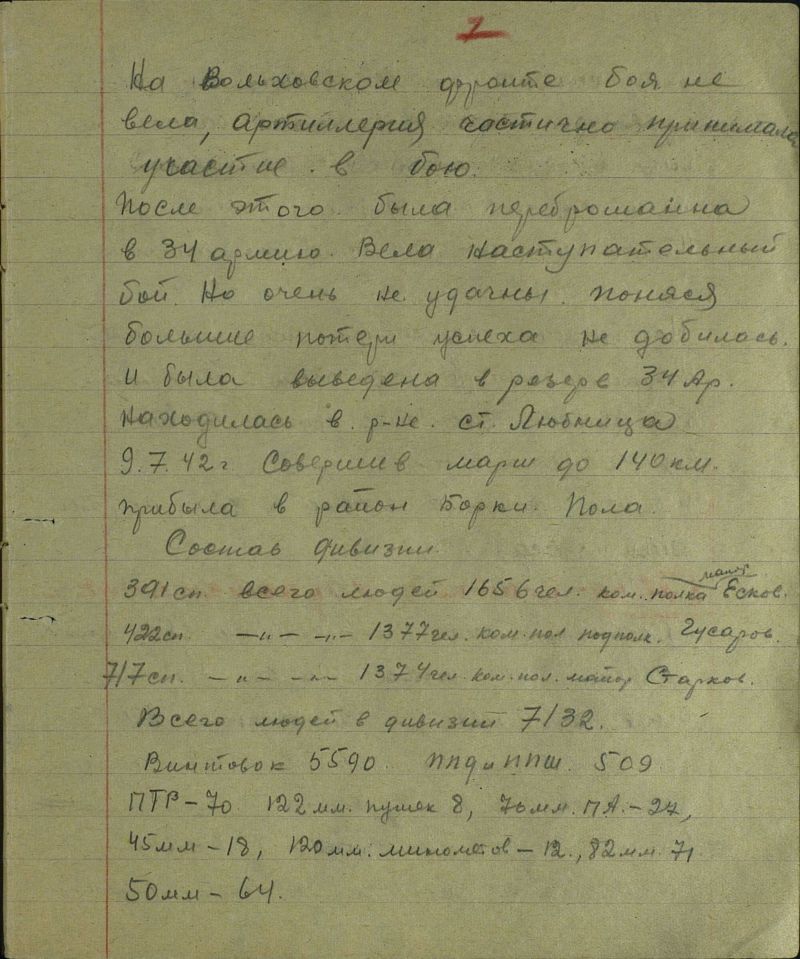 1
На Волховском фронте боя не
вела, артиллерия частично принимала
участие в бою.
После этого была переброшанна
в 34 армию. Вела наступательный
бой. Но очень не удачны. поняся
большие потери успеха не добилась.
и была выведена в резерв 34 Ар.
находилась в р-не. ст. Любница
9.7.42 г Совершив марш до 140 км.
прибыла в район Борки. Пола.
Состав дивизии.
391 сп. всего людей 1656 чел. ком. полка майор Есков.
422 сп. —„— —„— 1377 чел. ком. пол подполк. Гусаров.
717 сп. —„— —„— 1374 чел. ком. пол. майор Старков.
Всего людей в дивизии 7132.
Винтовок 5590. ППД и ППШ. 509.
ПТР – 70 122 мм. пушек 8, 76 мм. ПА. – 27,
45 мм – 18, 120 мм. минометов – 12., 82 мм. 71
50 мм – 64.